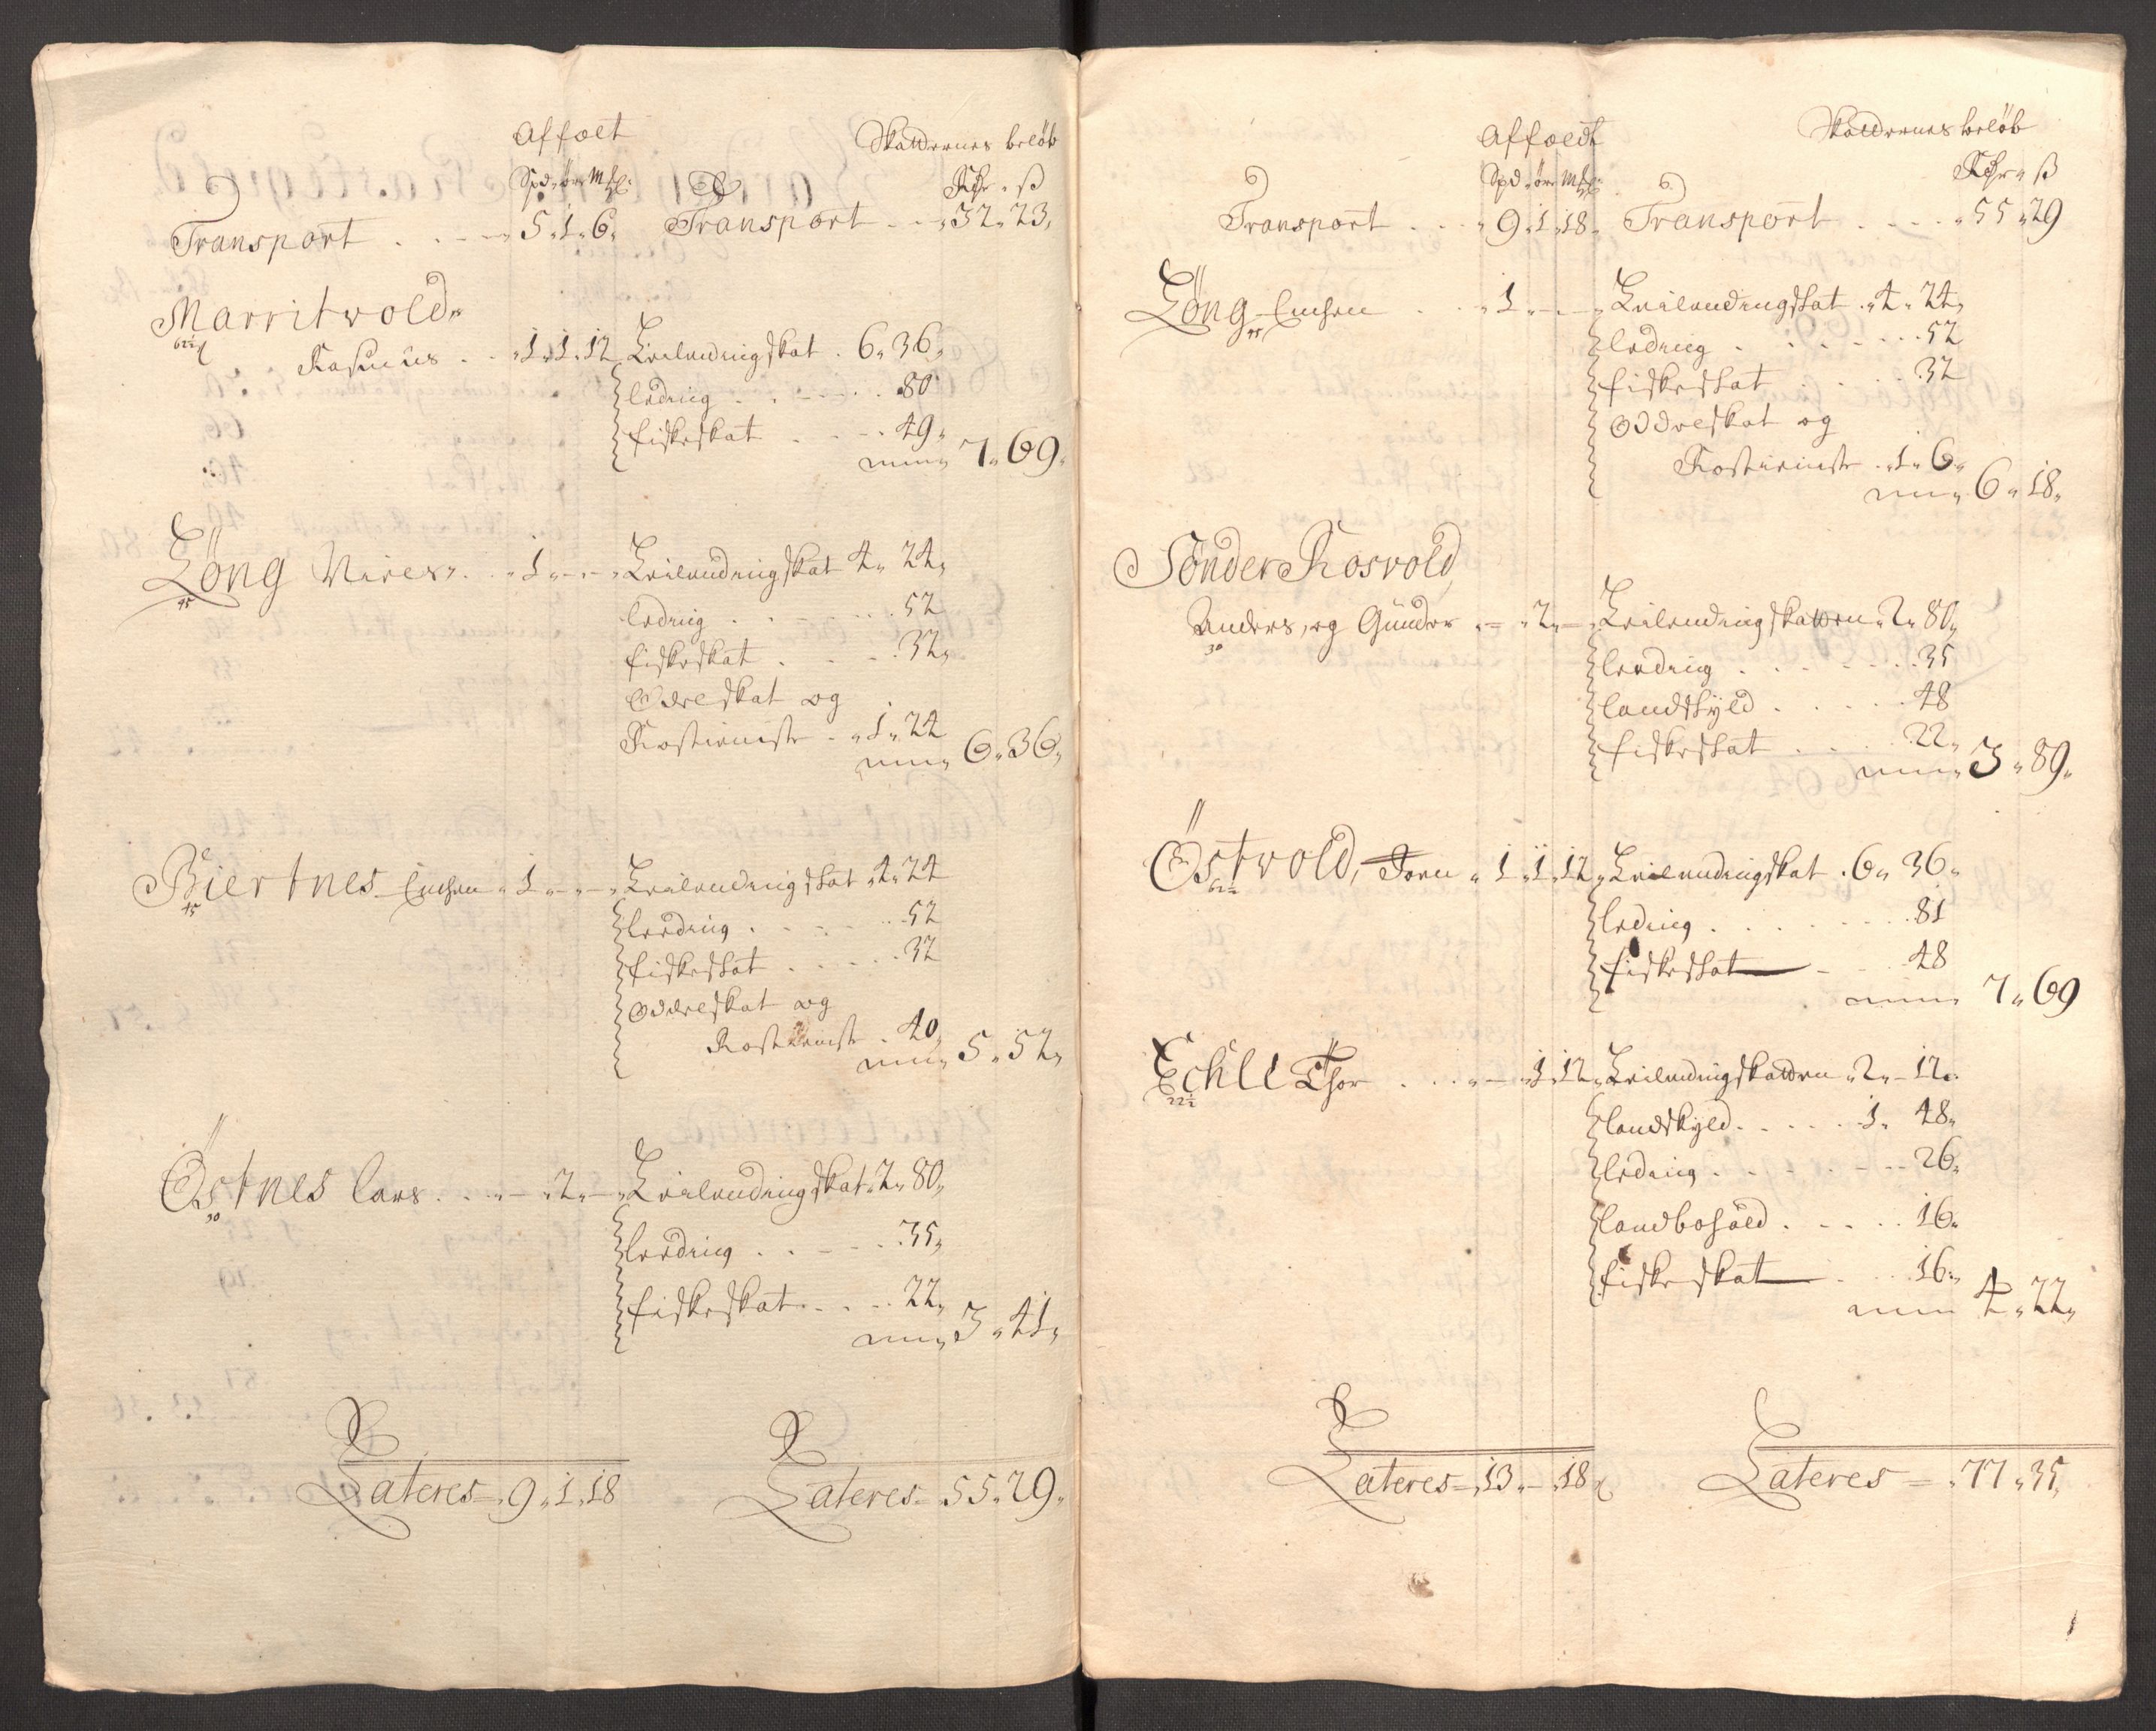 Affoelt Skatternes beløb
Spd ør Mkl: Rdr ß
Transport . . . 5 1 6 Transport . . 32 23
Marritwold
62½
Rasmus . . 1 1 12 Leilendingskat . 6 36
ledring . . . . . 80
fiskeskat . . . 49
7 69
Löng . . 1 - - Leilendingskat 4 24
45
ledring . . . . . 52
fiskeskat . . . 32
Odreskat og
Rostieniste . . 1 22
6 36
Biertnes 1 - - Leilendingskat 4 24
45
leedring . . . . . 52
fiskeskat . . . . 32
Oddreskat og
Rostienist . 40
5 52
Östnes Lars . . . - 2 - Leilendingskat 2 80
30
leedring . . . . 35
fiskeskat . . . . 22
3 41
Lateres 9 1 18 Lateres 55 29
Affoeldt Skatternes beløb
Spd ør Mkl: Rdr ß
Transport . . . 9 1 18 Transport . . . . 55 29
Löng . . 1 - - Leilendingskat . 4 24
45
ledring . . . . . . 52
fiskeskat . . . . 32
Oddreskat og
Rostieniste . 1 6
6 18
Sönder Rosvold
Anders, og Gunder - 2 - Leilendingskatten 2 80
30
leedring . . . . . . 35
landskyld . . . . . 48
fiskeskat . . . . 22
3 89
Östvold, Joen 1 1 12 Leilendingskat . 6 36
62½
ledring . . . . . . 81
fiskeskat - . . 48
7 69
Echle Thor . . . - 1 12 Leilendingskatten 2 - 12
22½
landskyld . . . . . 1 48
ledring . . . . . . 26
landbohold . . . . . 16
fiske skat . . . 16
4 22
Lateres 13 - 18 Lateres 77 35